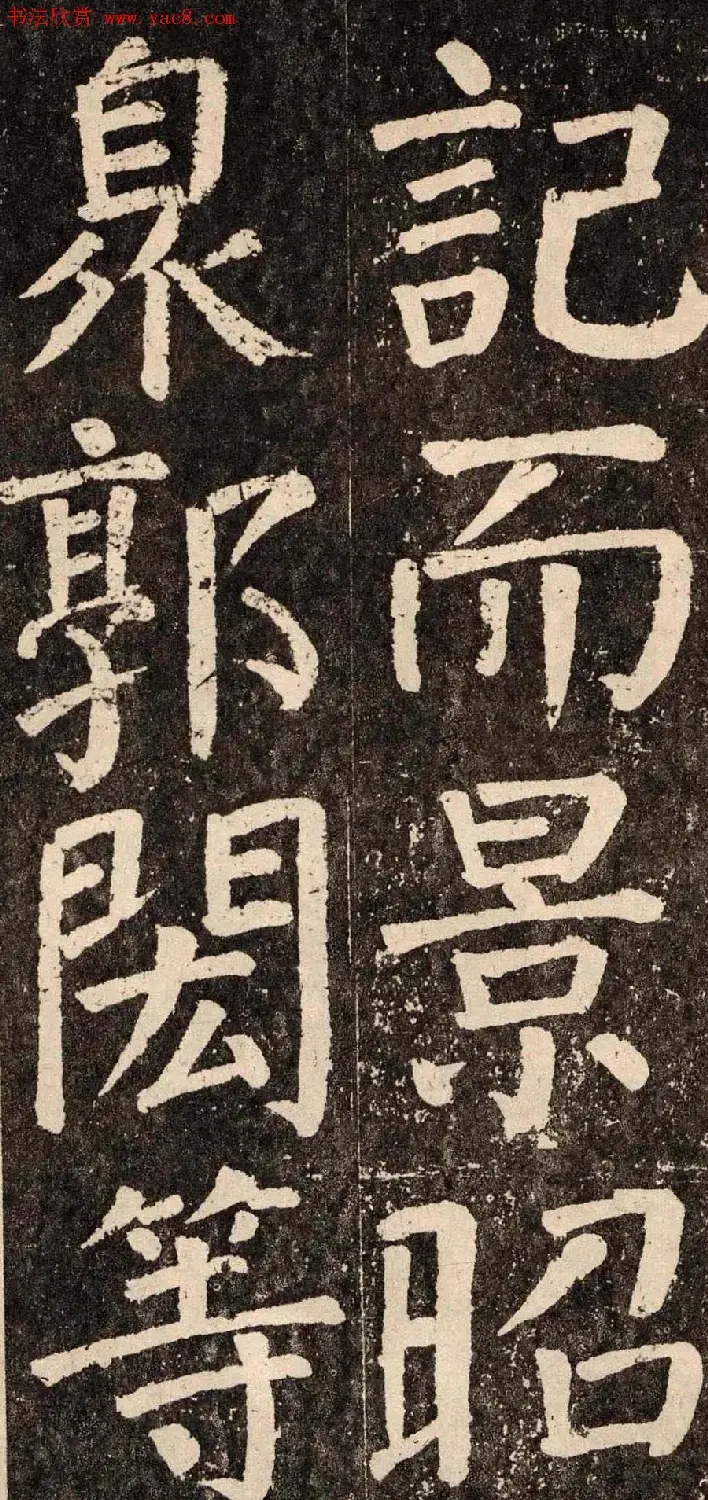 书法欣赏 www.yac8.com
記而景昭
臮郭閎等